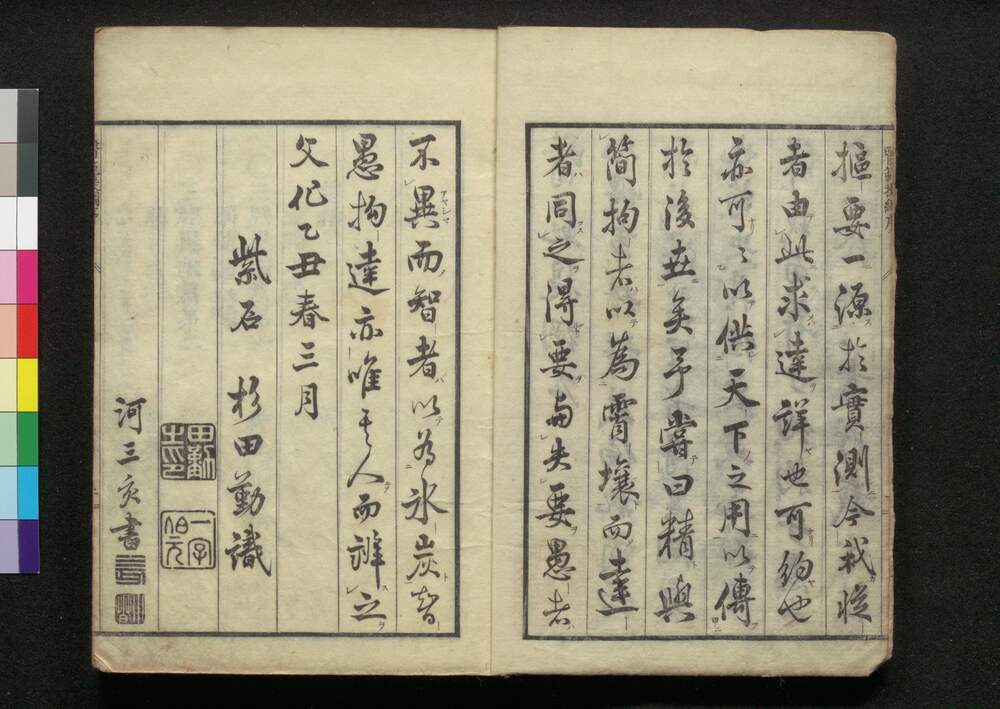 摳要一源於實測今我從
者由此求達詳也可約也
亦可以供天下之用以傳
於後世矣予嘗曰精與
簡拘者以為霄壤而達
者同之得要與失要愚者
不異而智者以為氷炭智
愚拘達亦唯其人而辨之
文化乙丑春三月
紫石 杉田勤識
一字伯元
河三亥書